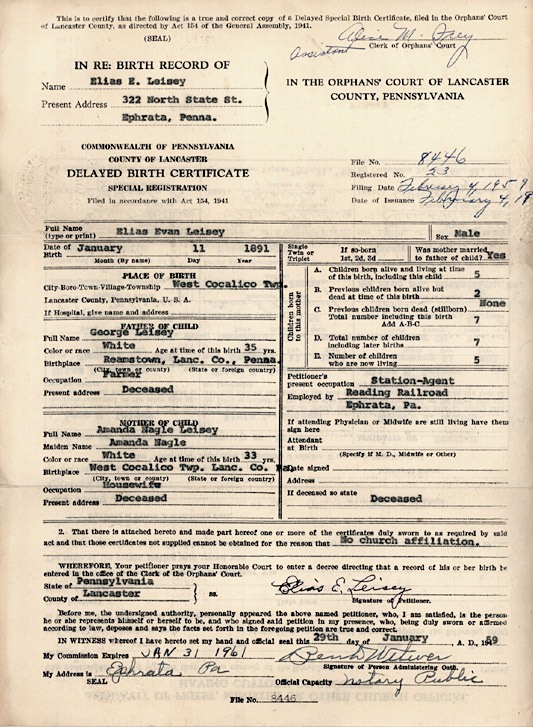 This is to certify that the following is a true and correct copy of a Delayed Special Birth Certificate, filed in the Orphans' Court
of Lancaster County, as directed by Act 154 of the General Assembly, 1941.
(SEAL)
Assistant Clerk of Orphans' Court
IN RE: BIRTH RECORD OF
Name Elias E. Leisey
Present Address 322 North State St.
Ephrata, Penna.
IN THE ORPHANS' COURT OF LANCASTER
COUNTY, PENNSYLVANIA
COMMONWEALTH OF PENNSYLVANIA
COUNTY OF LANCASTER
DELAYED BIRTH CERTIFICATE
SPECIAL REGISTRATION
Filed in accordance with Act 154, 1941
File No. 8446
Registered No. 23
Filing Date February 4, 1959
Date of Issuance February 4, 19
Full Name (type or print) Elias Evan Leisey Sex Male
Date of Birth January 11 1891
Month (By name) Day Year
Single Twin or Triplet
If so-born 1st, 2d, 3d
Was mother married to father of child? Yes
PLACE OF BIRTH
City-Boro-Town-Village-Township West Cocalico Twp.
Lancaster County, Pennsylvania, U. S. A.
If Hospital, give name and address
Children born to this mother
A. Children born alive and living at time of birth, including this child 5
B. Previous children born alive but dead at time of this birth 2
C. Previous children born dead (stillborn) None
Total number including this birth Add A-B-C 7
D. Total number of children including later births 7
E. Number of children who are now living 5
FATHER OF CHILD
Full Name George Leisey
Color or race White Age at time of this birth 35 yrs.
Birthplace Reamstown, Lanc. Co., Penna.
(City, town or county) (State or foreign country)
Occupation Farmer
Present address Deceased
MOTHER OF CHILD
Full Name Amanda Nagle Leisey
Maiden Name Amanda Nagle
Color or race White Age at time of this birth 33 yrs.
Birthplace West Cocalico Twp. Lanc. Co.
(City, town or county) (State or foreign country)
Occupation Housewife
Present address Deceased
Petitioner's present occupation Station-Agent
Employed by Reading Railroad
Ephrata, Pa.
If attending Physician or Midwife are still living have them sign here
Attendant at Birth
(Specify if M. D., Midwife or Other)
Date signed
Address
If deceased so state Deceased
2. That there is attached hereto and made part hereof one or more of the certificates duly sworn to as required by said
act and that those certificates not supplied cannot be obtained for the reason that No church affiliation.
WHEREFORE, Your petitioner prays your Honorable Court to enter a decree directing that a record of his or her birth be
entered in the office of the Clerk of the Orphans' Court.
State of Pennsylvania
County of Lancaster ss.
Elias E. Leisey
Signature of Petitioner.
Before me, the undersigned authority, personally appeared the above named petitioner, who, I am satisfied, is the person
he or she represents himself or herself to be, and who signed said petition in my presence, who, being duly sworn or affirmed
according to law, deposes and says the facts set forth in the foregoing petition are true and correct.
IN WITNESS whereof I have hereto set my hand and official seal this 29th day of January A. D., 1959
My Commission Expires JAN 31 1961
Signature of Person Administering Oath.
My Address is Ephrata Pa
SEAL
Official Capacity Notary Public
File No. 8446